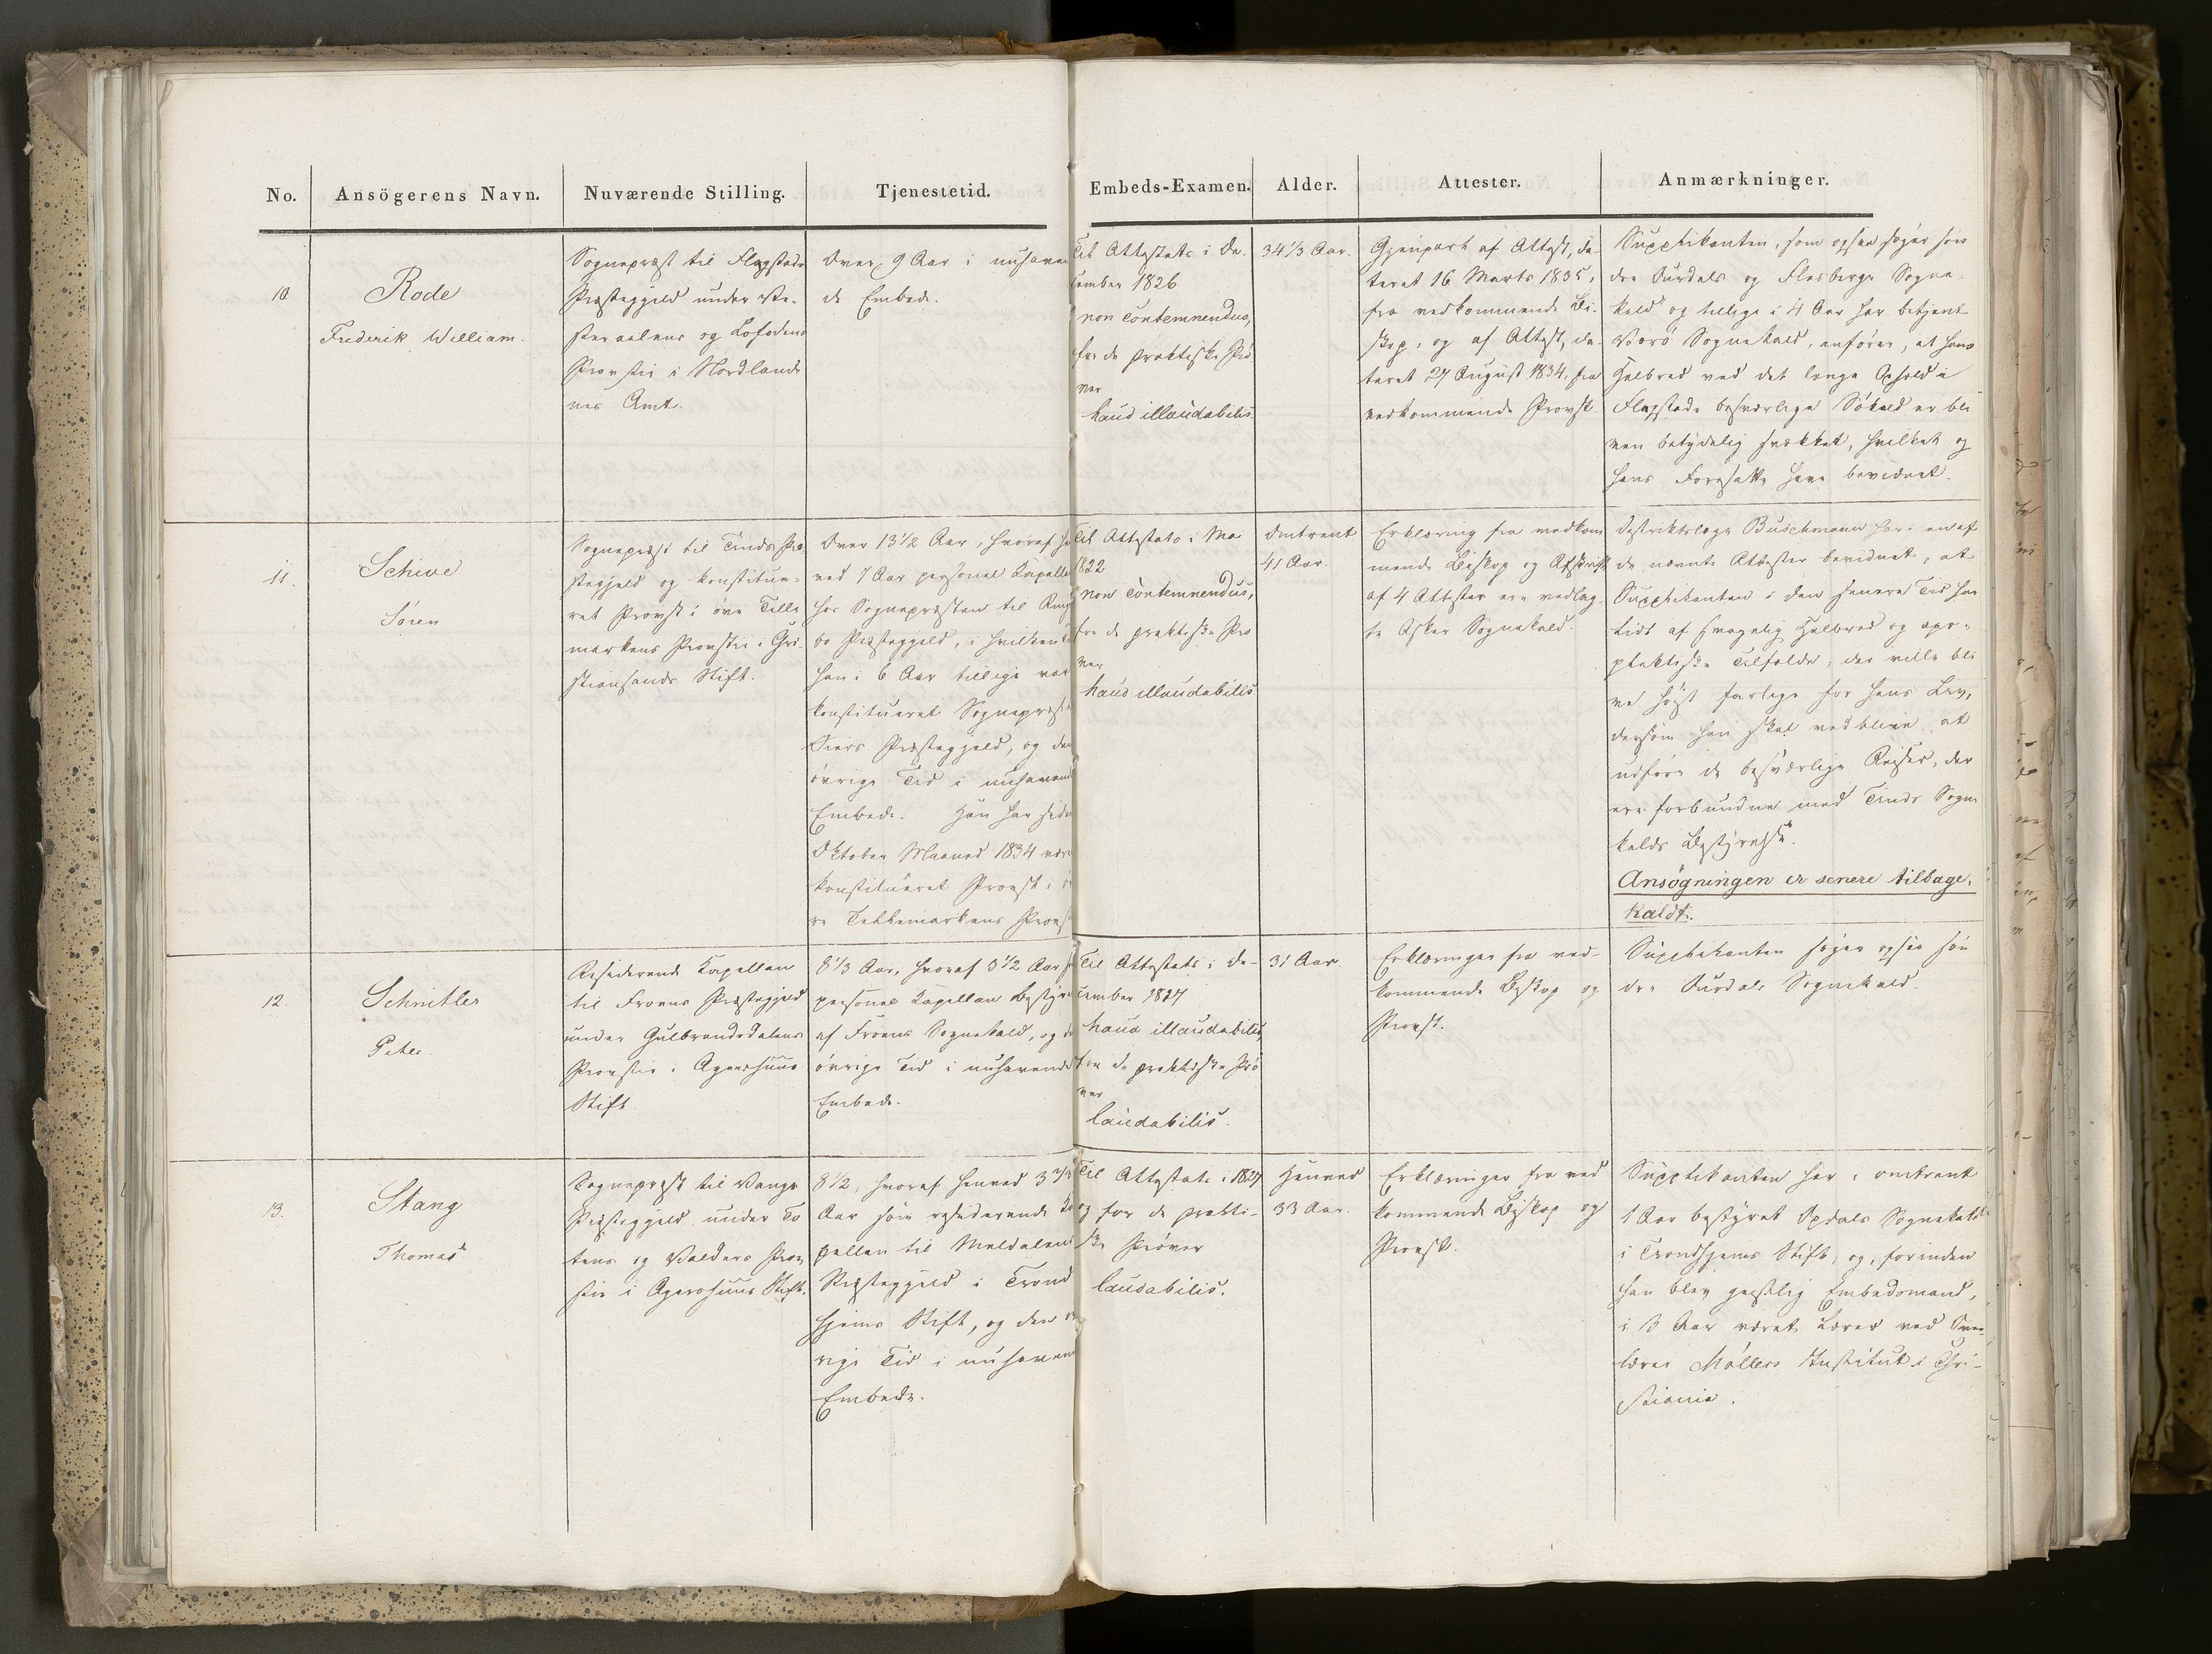 No.
Ansögerens Navn.
Nuværende Stilling.
Tjenestetid.
Embeds-Examen.
Alder.
Attester.
Anmærkninger.
10
Rode
Frederik William.
Sognepræst til Flagstads
Præstegjeld under Ve-
steraalens og Lofodens
Provstie i Nordlande
nes Amt.
Over 9 Aar i nuhaven
de Embede.
Til Attestats i De-
cember 1826
non contemnendus,
for de praktiske Prö
ver
haud illaudabilis.
34 1/3 Aar.
Gjenpart af Attest, da-
teret 16 Marts 1835,
fra vedkommende Bi-
skop, og af Attest, da-
teret 27 August 1834, fra
vedkommende Provst.
Supplikanten, som ogsaa söger Søn
dre Aurdals og Flesbergs Sogne-
kald og tillige i 4 Aar har betjent
Værö Sognekald, anförer, at hans
Helbred ved det lange Ophold i
Flagstads besværlige Sökald er ble
ven betydelig svækket, hvilket og
hans Foresatte have bevidnet.
11.
Schive
Sören
Sognepræst til Tinds Præ-
stegjeld og konstitue-
ret Provst i övre Telle
markens Provstie i Chri-
stiansands Stift.
Over 13 1/2 Aar, hvoraf hen
ved 7 Aar personel Kapellan
hos Sognepræsten til
bo Præstegjeld, i hvilken
han i 6 Aar tillige var
konstitueret Sognepræst
Præstegjeld, og den
övrige Tid i nuhavende
Embede. Han har siden
Oktober Maaned 1834 været
konstitueret Provst i öv
re Tellemarkens Provst
Til Attestats i Mai
1822
non contemnendus,
for de praktiske Prö
ver
haud illaudabilis
Omtrent
41 Aar.
Erklæring fra vedkom
mende Biskop og Afskrift
af 4 Attester ere vedlag-
te Asker Sognekald.
Distriktslæge Buschmann har i en af
de nævnte Attester bevidnet, at
Supplikanten i den senere Tid har
lidt af svagelig Helbred og apo-
plektiske Tilfælde, der ville bli
ve höist farlige for hans Liv,
dersom han skal vedblive at
udföre de besværlige Reiser, der
ere forbundne med Tinds Sogne
kalds Bestyrelse.
Ansögningen er senere tilbage-
kaldt.
12.
Schnitler
Peter.
Residerende Kapellan
til Froens Præstegjeld
under Gulbrandsdalens
Provstie i Agershuus
Stift
8 1/3 Aar, hvoraf 3 1/2 Aar som
personel Kapellan Bestyrer
af Froens Sognekald, og den
övrige Tid i nuhavende
Embede.
Til Attestats i De-
cember 1827
haud illaudabilis,
for de praktiske Prö
ver
laudabilis.
31 Aar.
Erklæringer fra ved-
kommende Biskop og
Provst.
Supplikanten söger ogsaa Søn
dre Aurdals Sognekald.
13.
Stang
Thomas
Sognepræst til Vangs
Præstegjeld under To
tens og Valders Prov
stie i Agershuus Stift.
8 1/2, hvoraf henved 3 2/3
Aar som residerende Ka
pellan til Meldalens
Præstegjeld i Trond
hjems Stift, og den öv
rige Tid i nuhavende
Embede.
Til Attestats i 1827
og for de prakti-
ske Pröver
laudabilis.
Henved
33 Aar.
Erklæringer fra ved
kommende Biskop og
Provst.
Supplikanten har i omtrent
1 Aar bestyret Opdals Sognekald
i Trondhjems Stift, og, forinden
han blev geistlig Embedsmand,
i 3 Aar været Lærer ved Over
lærer Möllers Institut i Chri-
stiania.